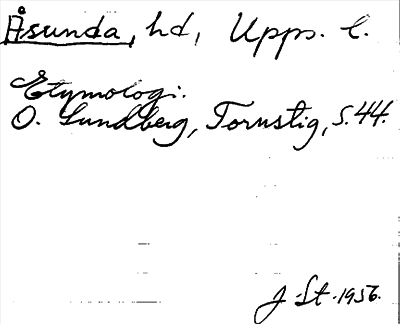 Åsunda, hd, Upps. l.
Etymologi:
O. Lundberg, Tornstig, s. 44.
J. St. 1956.